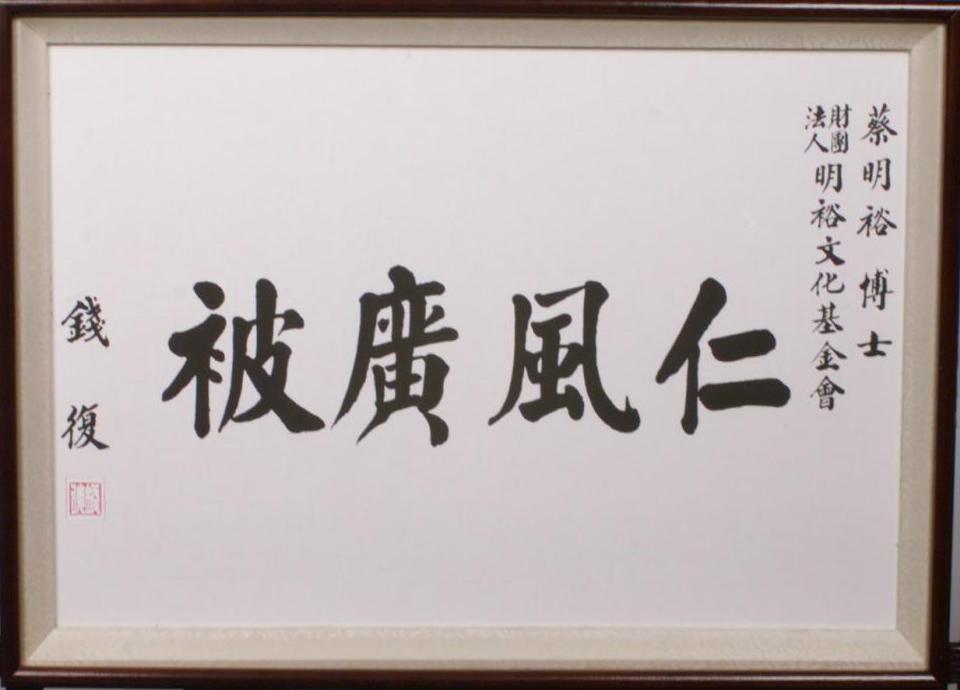 蔡明裕 博士
財團法人明裕文化基金會
仁風廣被
錢復